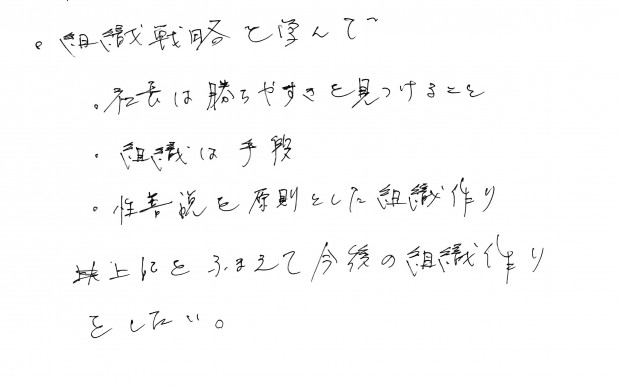 。組織戦略を学んで
・社長は勝ちやすきを見つけること
・組織は手段
・性善説を原則とした組織作り
上記をふまえて今後の組織作り
をしたい。